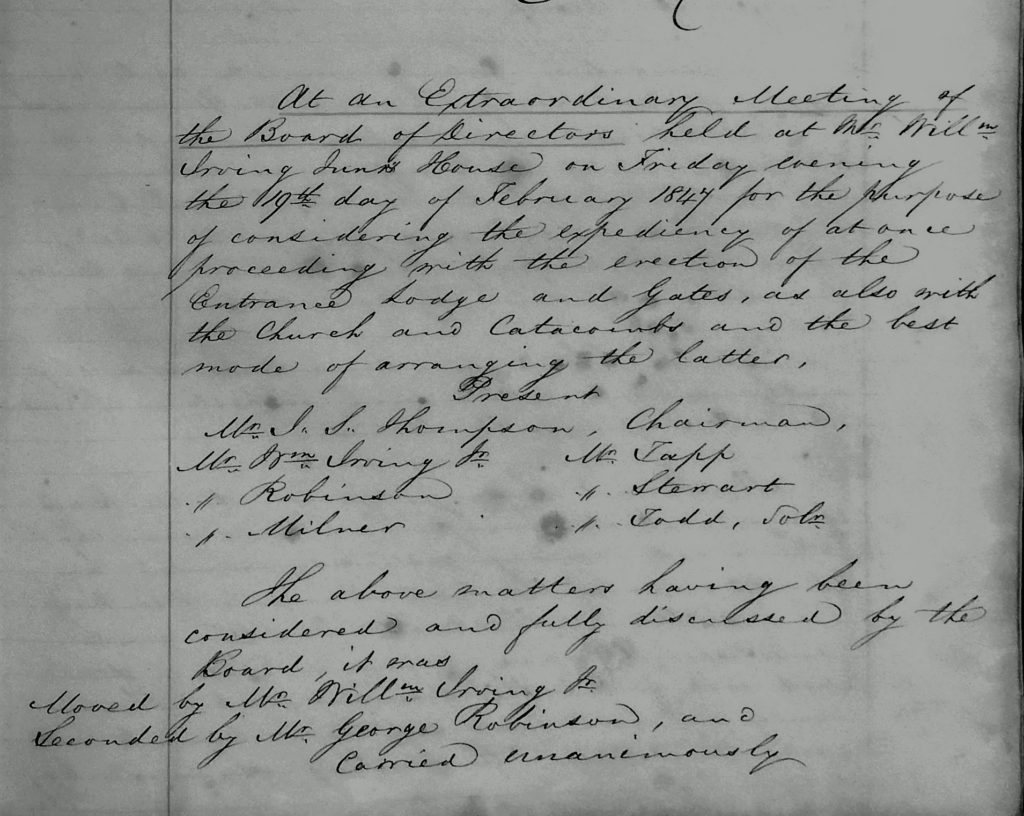 At an Extraordinary Meeting of
the Board of Directors held at Mr. Willm
Irving Junr's House on Friday evening
the 19th day of February 1847 for the purpose
of considering the expediency of at once
proceeding with the erection of the
Entrance Lodge and Gates, as also with
the Church and Catacombs and the best
mode of arranging the latter,
Present
Mr. J. S. Thompson, Chairman,
Mr. Wm Irving Jr Mr. Tapp
" Robinson " Stewart
" Milner " Todd, Solr
The above matters having been
considered and fully discussed by the
Board, it was
Moved by Mr. Willm Irving Jr
Seconded by Mr. George Robinson, and
Carried unanimously